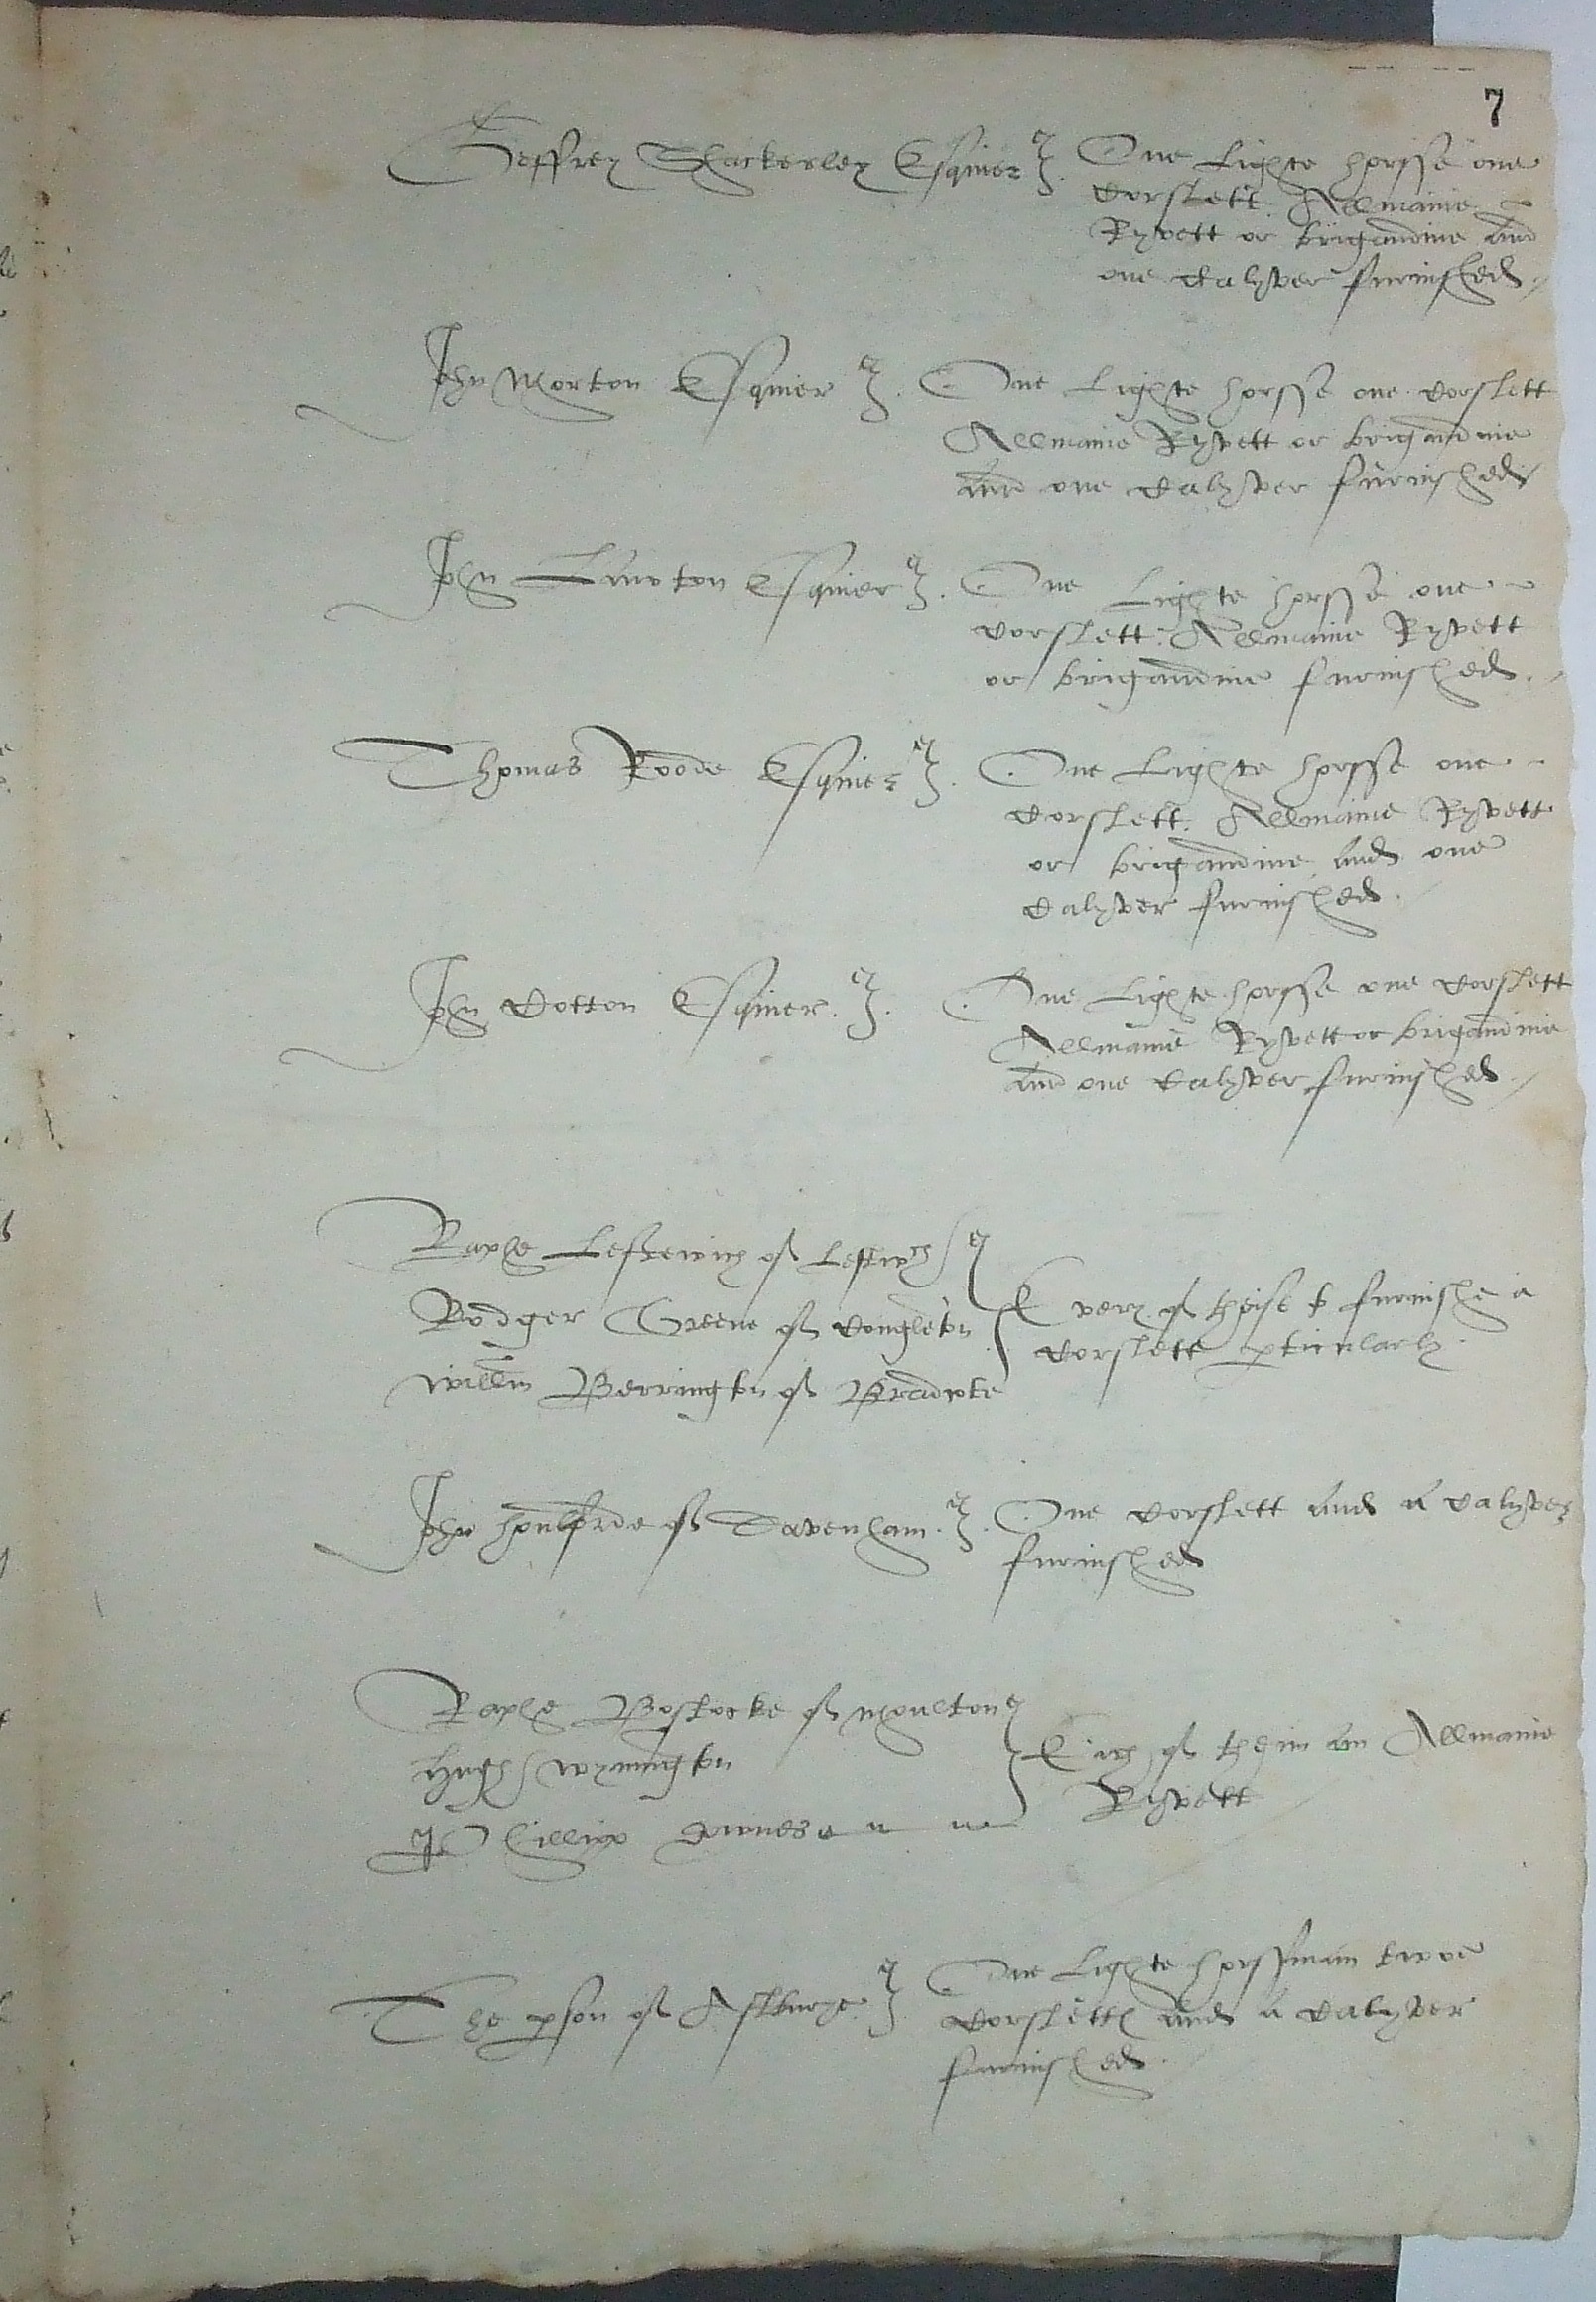 7
Geffrey Shackerley Esquier One Lighte horsse one
Corslett Allmaine
Ryvett or brigandine And
one Calyver furnished
John Morton Esquier One Lighte horsse one Corslett
Allmaine Ryvett or brigandine
And one Calyver furnished
John Lawton Esquier One Lighte horsse one
Corslett Allmaine Ryvett
or brigandine furnished.
Thomas Roode Esquier One Lighte horsse one
Corslett. Allmaine Ryvett
or brigandine And one
Calyver furnished.
John Cotton Esquier. One Lighte horsse one Corslett
Allmaine Ryvett or brigandine
And one Calyver furnished
Raphe Leftewich of Leftwch
Rodger Greene of Congleton
Willm Berrington of Bradwle
Every of theise to furnishe a
Corslett pticularly
John houlforde of Davenham. One Corslett And a Calyver
furnished
Raphe Bostocke of Moulton
Hugh Wynnington
Phillipp Downes
Eich of theim An Allmaine
Ryvett
The pson of Astburye One Lighte horssman twoe
Corsletts And a Calyver
furnished.